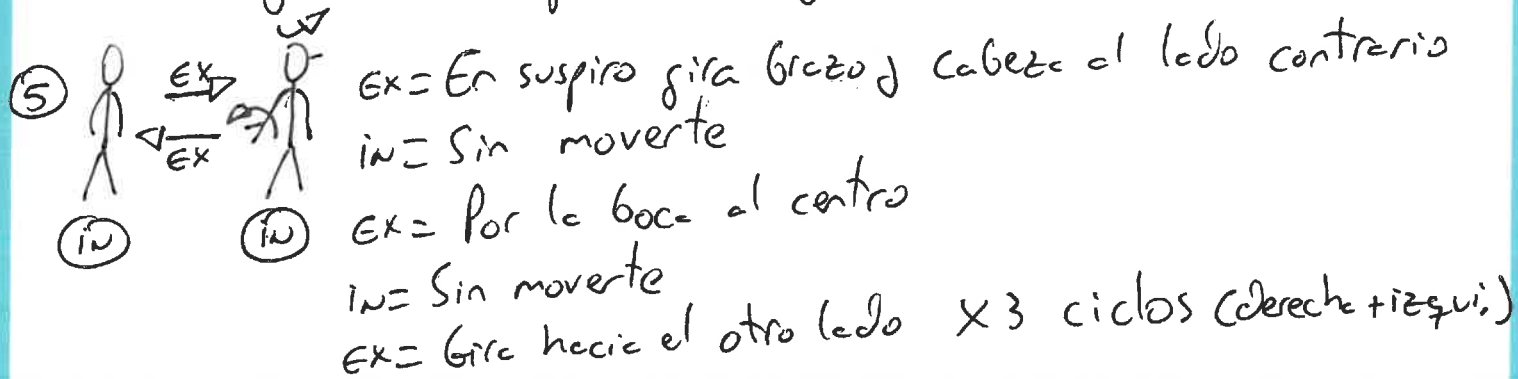 5 EX EX in in
EX = En suspiro gira brazo y cabeza al lado contrario
in = Sin moverte
EX = Por la boca al centro
in = Sin moverte
EX = Gira hacia el otro lado x3 ciclos (derecha + izqui.)